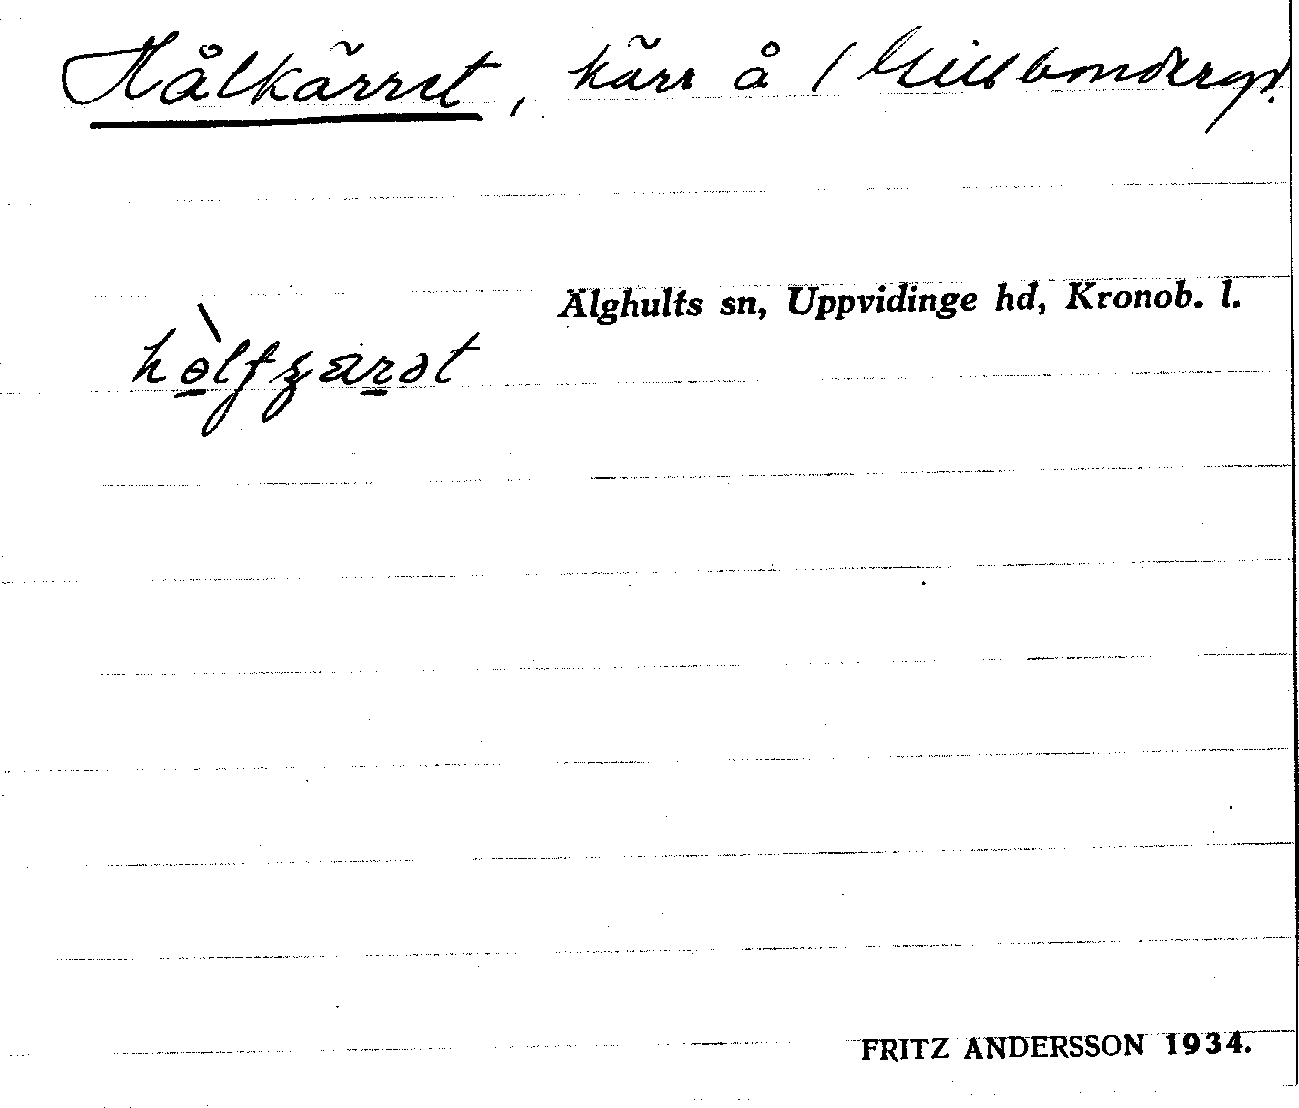 Hålkärret, kärr å / Gillbonderyd.
Älghults sn, Uppvidinge hd, Kronob. l.
FRITZ ANDERSSON 1934.